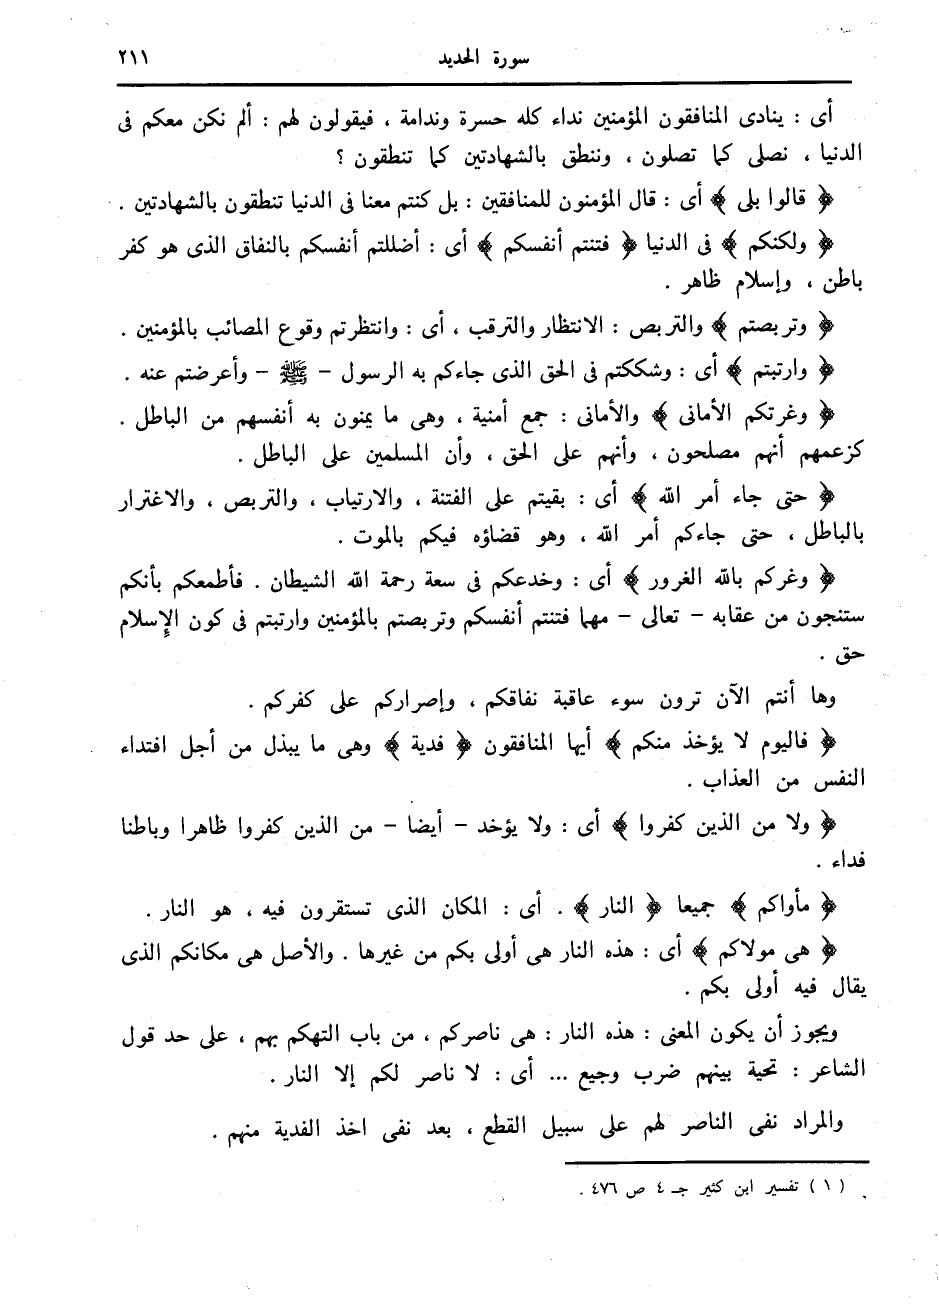 سورة الحديد ٢١١
أى : ينادى المنافقون المؤمنين نداء كله حسرة وندامة ، فيقولون لهم : ألم نكن معكم فى
الدنيا ، نصلى كما تصلون ، وننطق بالشهادتين كما تنطقون ؟
﴿ قالوا بلى ﴾ أى : قال المؤمنون للمنافقين : بل كنتم معنا فى الدنيا تنطقون بالشهادتين .
﴿ ولكنكم ﴾ فى الدنيا ﴿ فتنتم أنفسكم ﴾ أى : أضللتم أنفسكم بالنفاق الذى هو كفر
باطن ، وإسلام ظاهر .
﴿ وتربصتم ﴾ والتربص : الانتظار والترقب ، أى : وانتظرتم وقوع المصائب بالمؤمنين .
﴿ وارتبتم ﴾ أى : وشككتم فى الحق الذى جاءكم به الرسول – ﷺ – وأعرضتم عنه .
﴿ وغرتكم الأمانى ﴾ والأمانى : جمع أمنية ، وهى ما يمنون به أنفسهم من الباطل .
كزعمهم أنهم مصلحون ، وأنهم على الحق ، وأن المسلمين على الباطل .
﴿ حتى جاء أمر الله ﴾ أى : بقيتم على الفتنة ، والارتياب ، والتربص ، والاغترار
بالباطل ، حتى جاءكم أمر الله ، وهو قضاؤه فيكم بالموت .
﴿ وغركم بالله الغرور ﴾ أى : وخدعكم فى سعة رحمة الله الشيطان . فأطمعكم بأنكم
ستنجون من عقابه – تعالى – مهما فتنتم أنفسكم وتربصتم بالمؤمنين وارتبتم فى كون الإسلام
حق .
وها أنتم الآن ترون سوء عاقبة نفاقكم ، وإصراركم على كفركم .
﴿ فاليوم لا يؤخذ منكم ﴾ أيها المنافقون ﴿ فدية ﴾ وهى ما يبذل من أجل افتداء
النفس من العذاب .
﴿ ولا من الذين كفروا ﴾ أى : ولا يؤخد – أيضا – من الذين كفروا ظاهرا وباطنا
فداء .
﴿ مأواكم ﴾ جميعا ﴿ النار ﴾ . أى : المكان الذى تستقرون فيه ، هو النار .
﴿ هى مولاكم ﴾ أى : هذه النار هى أولى بكم من غيرها . والأصل هى مكانكم الذى
يقال فيه أولى بكم .
ويجوز أن يكون المعنى : هذه النار : هى ناصركم ، من باب التهكم بهم ، على حد قول
الشاعر : تحية بينهم ضرب وجيع ... أى : لا ناصر لكم إلا النار .
والمراد نفى الناصر لهم على سبيل القطع ، بعد نفى اخذ الفدية منهم .
( ١ ) تفسير ابن كثير جـ ٤ ص ٤٧٦ .